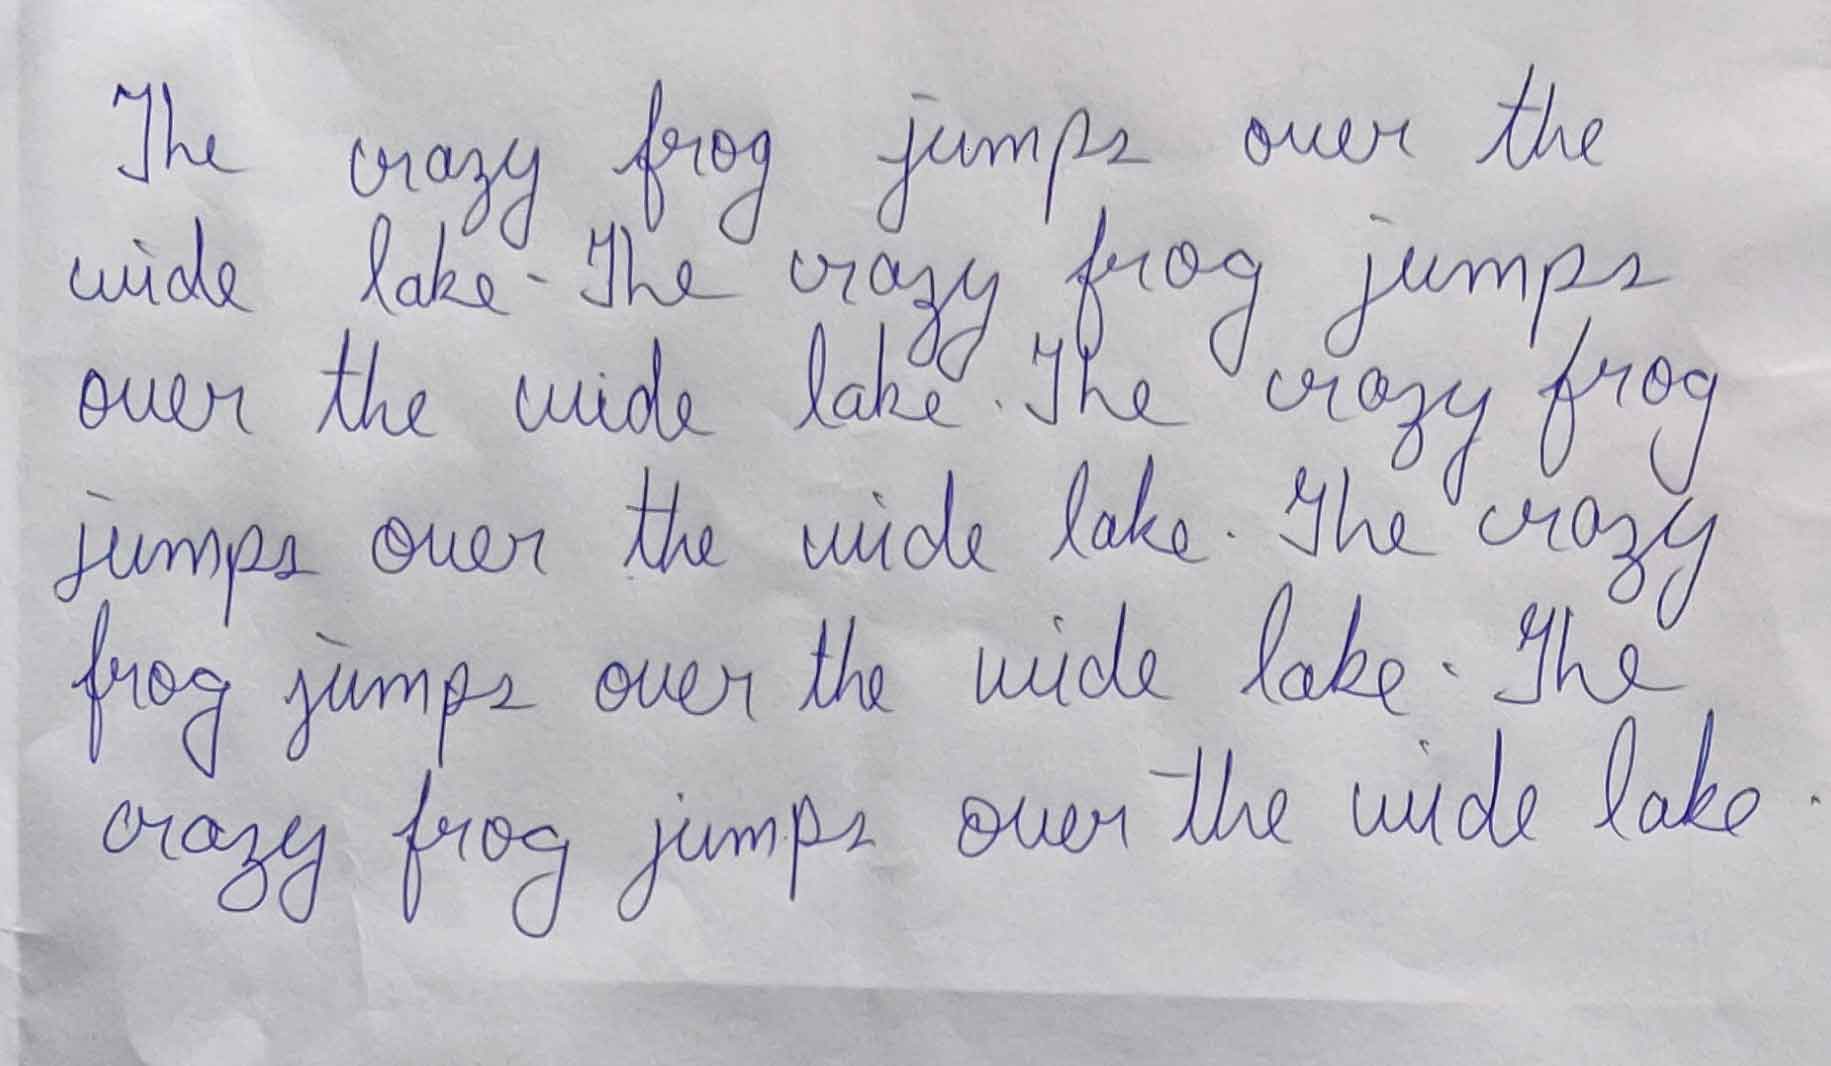 The crazy frog jumps over the
wide lake. The crazy frog jumps
over the wide lake. The crazy frog
jumps over the wide lake. The crazy
frog jumps over the wide lake. The
crazy frog jumps over the wide lake.